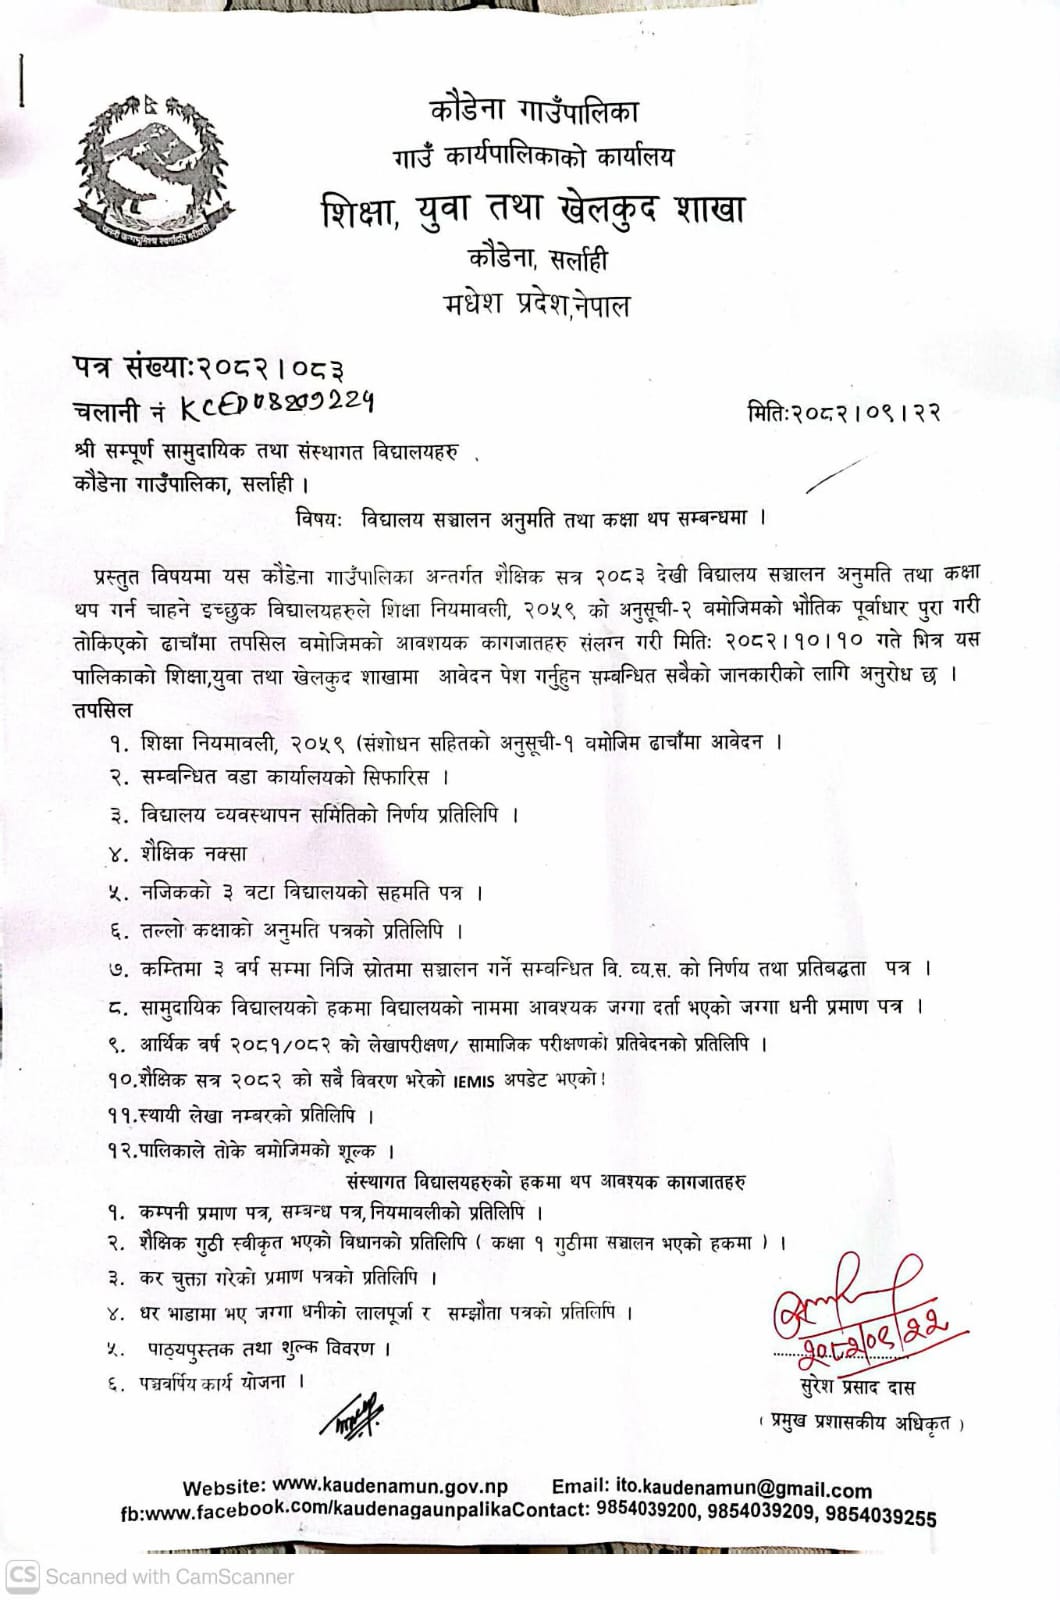 कौडेना गाउँपालिका
गाउँ कार्यपालिकाको कार्यालय
शिक्षा, युवा तथा खेलकुद शाखा
कौडेना, सर्लाही
मधेश प्रदेश,नेपाल
पत्र संख्याः२०८२।०८३
चलानी नं KCED08209224
मितिः२०८२।०९।२२
श्री सम्पूर्ण सामुदायिक तथा संस्थागत विद्यालयहरु
कौडेना गाउँपालिका, सर्लाही ।
विषयः विद्यालय सञ्चालन अनुमति तथा कक्षा थप सम्बन्धमा ।
प्रस्तुत विषयमा यस कौडेना गाउँपालिका अन्तर्गत शैक्षिक सत्र २०८३ देखी विद्यालय सञ्चालन अनुमति तथा कक्षा
थप गर्न चाहने इच्छुक विद्यालयहरुले शिक्षा नियमावली, २०५९ को अनुसूची-२ बमोजिमको भौतिक पूर्वाधार पुरा गरी
तोकिएको ढाचाँमा तपसिल बमोजिमको आवशयक कागजातहरु संलग्न गरी मितिः २०८२।१०।१० गते भित्र यस
पालिकाको शिक्षा,युवा तथा खेलकुद शाखामा आवेदन पेश गर्नुहुन सम्बन्धित सबैको जानकारीको लागि अनुरोध छ ।
तपसिल
१. शिक्षा नियमावली, २०५९ (संशोधन सहितको अनुसूची-१ बमोजिम ढाचाँमा आवेदन ।
२. सम्बन्धित वडा कार्यालयको सिफारिस ।
३. विद्यालय व्यवस्थापन समितिको निर्णय प्रतिलिपि ।
४. शैक्षिक नक्सा
५. नजिकको ३ वटा विद्यालयको सहमति पत्र ।
६. तल्लो कक्षाको अनुमति पत्रको प्रतिलिपि ।
७. कम्तिमा ३ वर्ष सम्मा निजि स्रोतमा सञ्चालन गर्ने सम्बन्धित वि. व्य.स. को निर्णय तथा प्रतिबद्धता पत्र ।
८. सामुदायिक विद्यालयको हकमा विद्यालयको नाममा आवश्यक जग्गा दर्ता भएको जग्गा धनी प्रमाण पत्र ।
९. आर्थिक वर्ष २०८१/०८२ को लेखापरीक्षण/ सामाजिक परीक्षणको प्रतिवेदनको प्रतिलिपि ।
१०.शैक्षिक सत्र २०८२ को सबै विवरण भरेको IEMIS अपडेट भएको!
११.स्थायी लेखा नम्बरको प्रतिलिपि ।
१२.पालिकाले तोके बमोजिमको शूल्क ।
संस्थागत विद्यालयहरुको हकमा थप आवश्यक कागजातहरु
१. कम्पनी प्रमाण पत्र, सम्बन्ध पत्र,नियमावलीको प्रतिलिपि ।
२. शैक्षिक गुठी स्वीकृत भएको विधानको प्रतिलिपि ( कक्षा १ गुठीमा सञ्चालन भएको हकमा ) ।
३. कर चुक्ता गरेको प्रमाण पत्रको प्रतिलिपि ।
४. धर भाडामा भए जग्गा धनीको लालपूर्जा र सम्झौता पत्रको प्रतिलिपि ।
५. पाठ्यपुस्तक तथा शुल्क विवरण ।
६. पञ्चवर्षिय कार्य योजना ।
२०८२/०९/२२
सुरेश प्रसाद दास
( प्रमुख प्रशासकीय अधिकृत )
Website: www.kaudenamun.gov.np Email: ito.kaudenamun@gmail.com
fb:www.facebook.com/kaudenagaunpalikaContact: 9854039200, 9854039209, 9854039255
CS Scanned with CamScanner